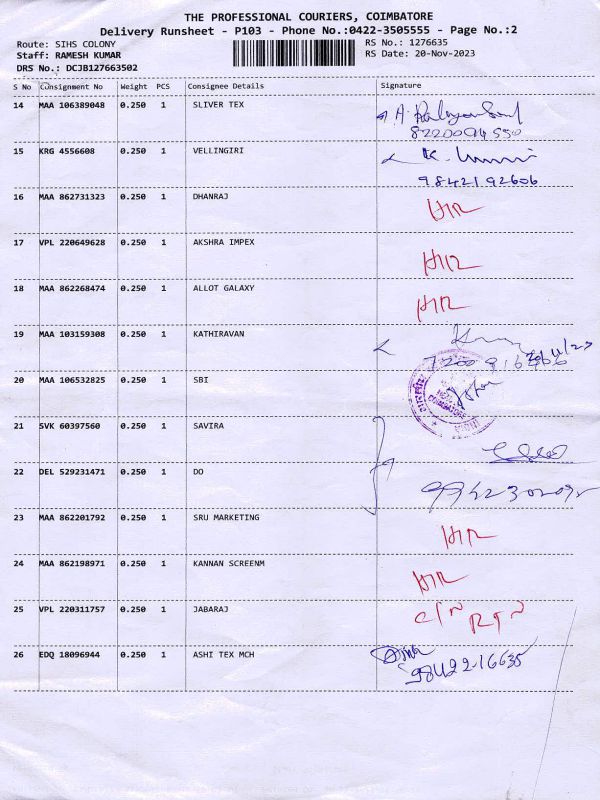 THE PROFESSIONAL COURIERS, COIMBATORE
Delivery Runsheet - P103 - Phone No.:0422-3505555 - Page No.:2
Route: SIHS COLONY
RS No.: 1276635
Staff: RAMESH KUMAR
RS Date: 20-Nov-2023
DRS No.: DCJB127663502
S No Consignment No Weight PCS Consignee Details Signature
14 MAA 106389048 0.250 1 SLIVER TEX
15 KRG 4556608 0.250 1 VELLINGIRI
98421 92606
16 MAA 862731323 0.250 1 DHANRAJ
17 VPL 220649628 0.250 1 AKSHRA IMPEX
18 MAA 862268474 0.250 1 ALLOT GALAXY
19 MAA 103159308 0.250 1 KATHIRAVAN
20 MAA 106532825 0.250 1 SBI
COIMBATORE
21 SVK 60397560 0.250 1 SAVIRA
22 DEL 529231471 0.250 1 DO
23 MAA 862201792 0.250 1 SRU MARKETING
24 MAA 862198971 0.250 1 KANNAN SCREENM
25 VPL 220311757 0.250 1 JABARAJ
26 EDQ 18096944 0.250 1 ASHI TEX MCH
98422-16635